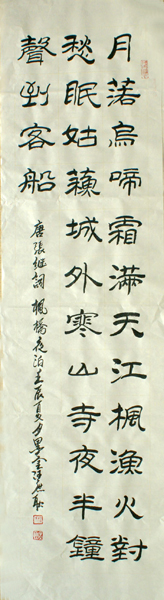 月落烏啼霜滿天江楓漁火對
愁眠姑蘇城外寒山寺夜半鐘
聲到客船
唐張繼詞楓橋夜泊